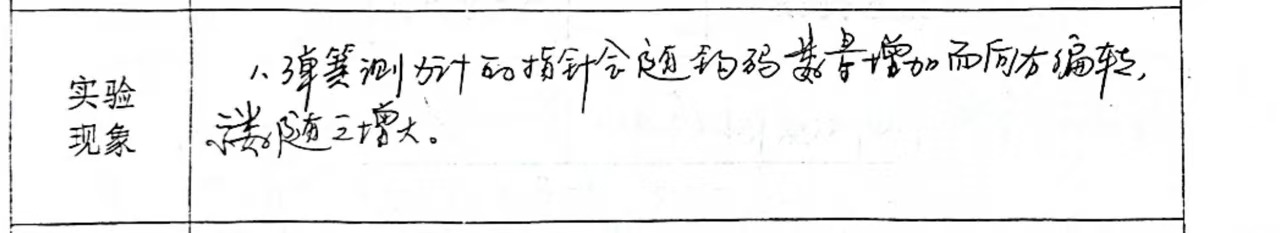 实验
现象
1、弹簧测力计的指针会随钩码数量增加而向右偏转,
示数随之增大。